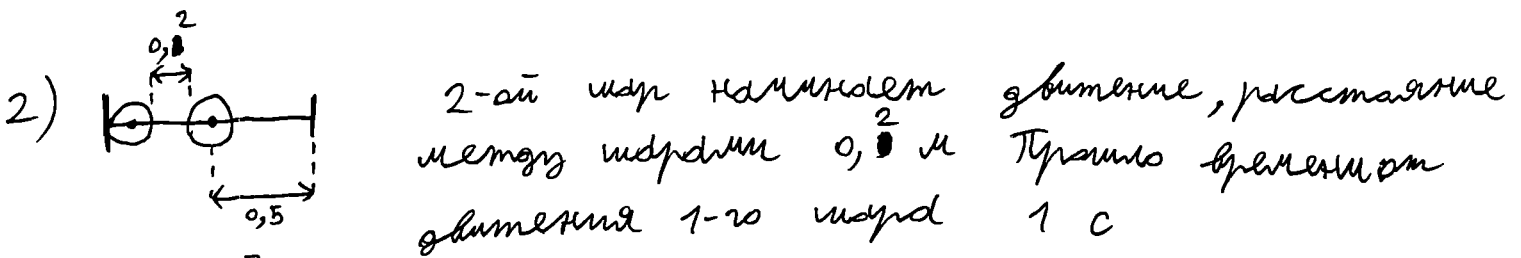 0,2
2)
0,5
2-ой шар начинает движение, расстояние
между шарами 0,2 м Прошло времени от
движения 1-го шара 1 с